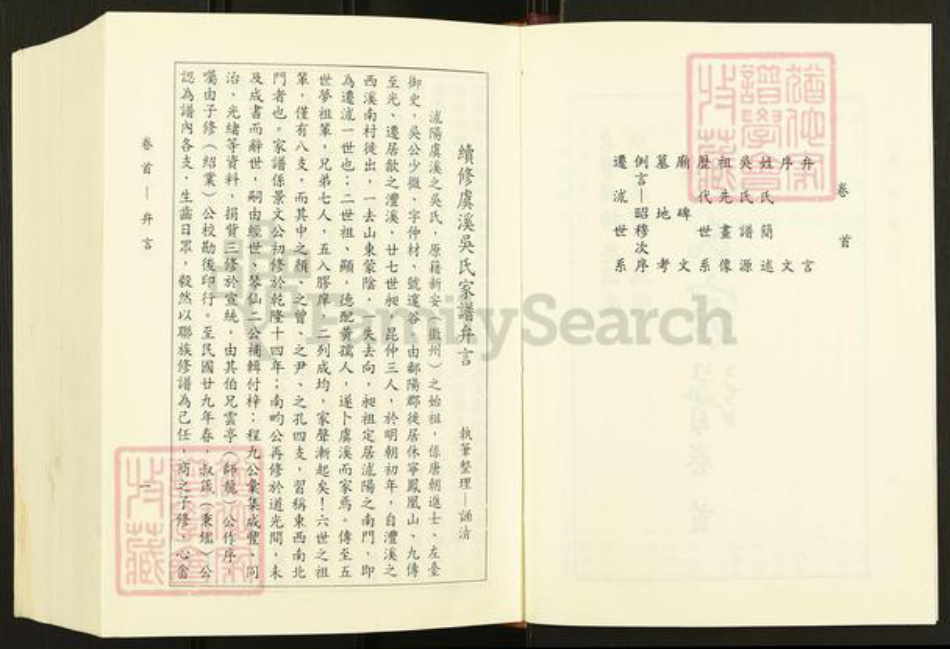 卷首
弁言
序文
姓氏簡述
吳氏譜源
祖先畫像
歷代世系
廟碑文
墓地考
例言—昭穆次序
遷㳦世系
續修虞溪吳氏家譜弁言
執筆整理—誦清
㳦陽虞溪之吳氏，原籍新安（徽州）之始祖，係唐朝進士、左臺
御史，吳公少微，字仲材、號邃谷，由鄱陽郡徙居休寧鳳凰山、九傳
至光、遷居歙之澧溪，廿七世昶，昆仲三人，於明朝初年，自澧溪之
西溪南村徙出，一去山東蒙陰，一失去向，昶祖定居㳦陽之南門，即
為遷㳦一世也；二世祖、顯，德配黃孺人，遂卜虞溪而家焉。傳至五
世夢祖輩，兄弟七人，五入膠庠，二列成均，家聲漸起矣！六世之祖
輩，僅有八支，而其中之顏、之曾、之尹、之孔四支，習稱東西南北
門者也。家譜係景文公初修於乾隆十四年；南畇公再修於道光間，未
及成書而辭世，嗣由經世、琴仙二公補輯付梓；程九公彙集咸豐、同
治、光緒等資料，捐貲三修於宣統，由其伯兄雲亭（師龍）公作序，
囑由子修（紹業）公校勘後印行。至民國廿九年春，叔箴（秉鑑）公
認為譜內各支，生齒日眾，毅然以聯族修譜為己任，商之子修、心畬
卷首—弁言
一
FamilySearch
猶他家譜學會收藏